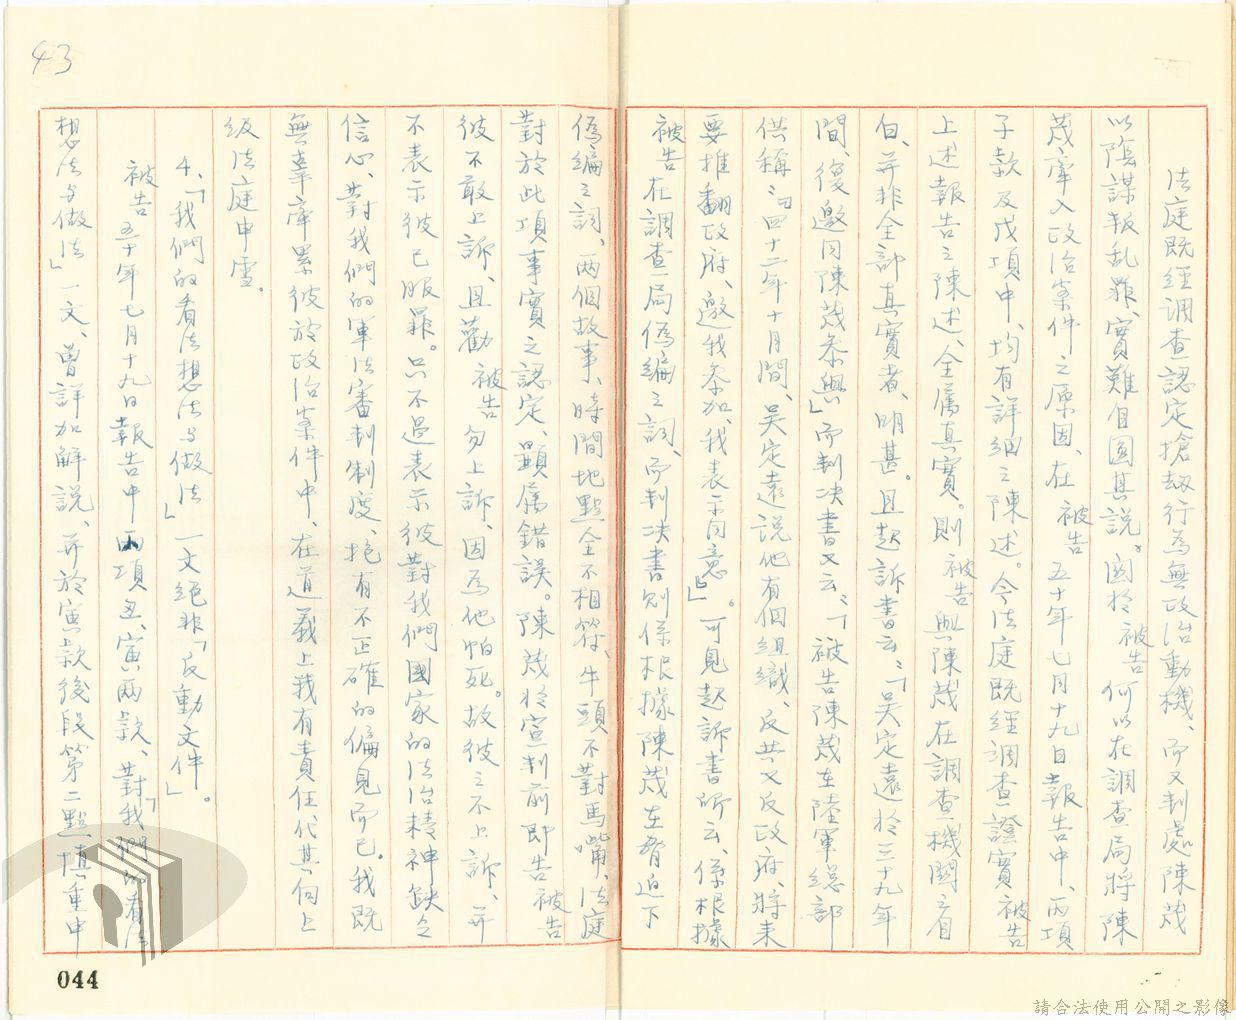 43
法庭既經調查認定搶劫行為無政治動機、而又判處陳茂
以陰謀叛乱罪、實難自圓其說。関於被告何以在調查局將陳
茂牽入政治案件之原因、在被告五十年七月十九日報告中、丙項
子款及戊項中、均有詳細之陳述。今法庭既經調查證實被告
上述報告之陳述、全屬真實。則被告與陳茂在調查機関之自
白、并非全部真實者、明甚。且起訴書云：「吳定遠於三十九年
間、復邀同陳茂參與」而判決書又云：「被告陳茂在陸軍總部
供稱：『四十二年十月間、吳定遠說他有個組織、反共又反政府、將來
要推翻政府、邀我參加、我表示同意』」。可見起訴書所云、係根據
被告在調查局偽編之詞、而判決書則係根據陳茂在脅迫下
偽編之詞、兩個故事、時間地點全不相符、牛頭不對馬嘴、法庭
對於此項事實之認定、顯屬錯誤。陳茂於宣判前即告被告
彼不敢上訴、且勸被告勿上訴、因為他怕死。故彼之不上訴、并
不表示彼已服罪。只不過表示彼對我們國家的法治精神缺乏
信心、對我們的軍法審判制度、抱有不正確的偏見而已。我既
無辜牽累彼於政治案件中、在道義上我有責任代其向上
級法庭申雪。
4、「我們的看法想法与做法」一文絕非「反動文件」。
被告五十年七月十九日報告中丙項丑、寅兩款、對「我們的看法
想法与做法」一文、曾詳加解說、并於寅款後段第二點慎重申
044
請合法使用公開之影像